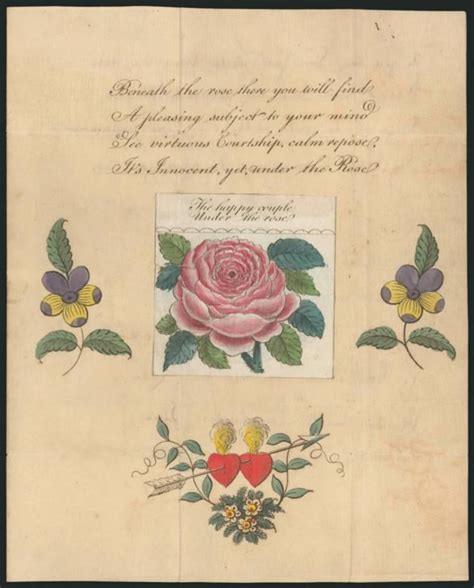 Beneath the rose there you will find
A pleasing subject to your mind
See virtuous Courtship, calm repose,
It's Innocent, yet, under the Rose
The happy couple
Under the rose